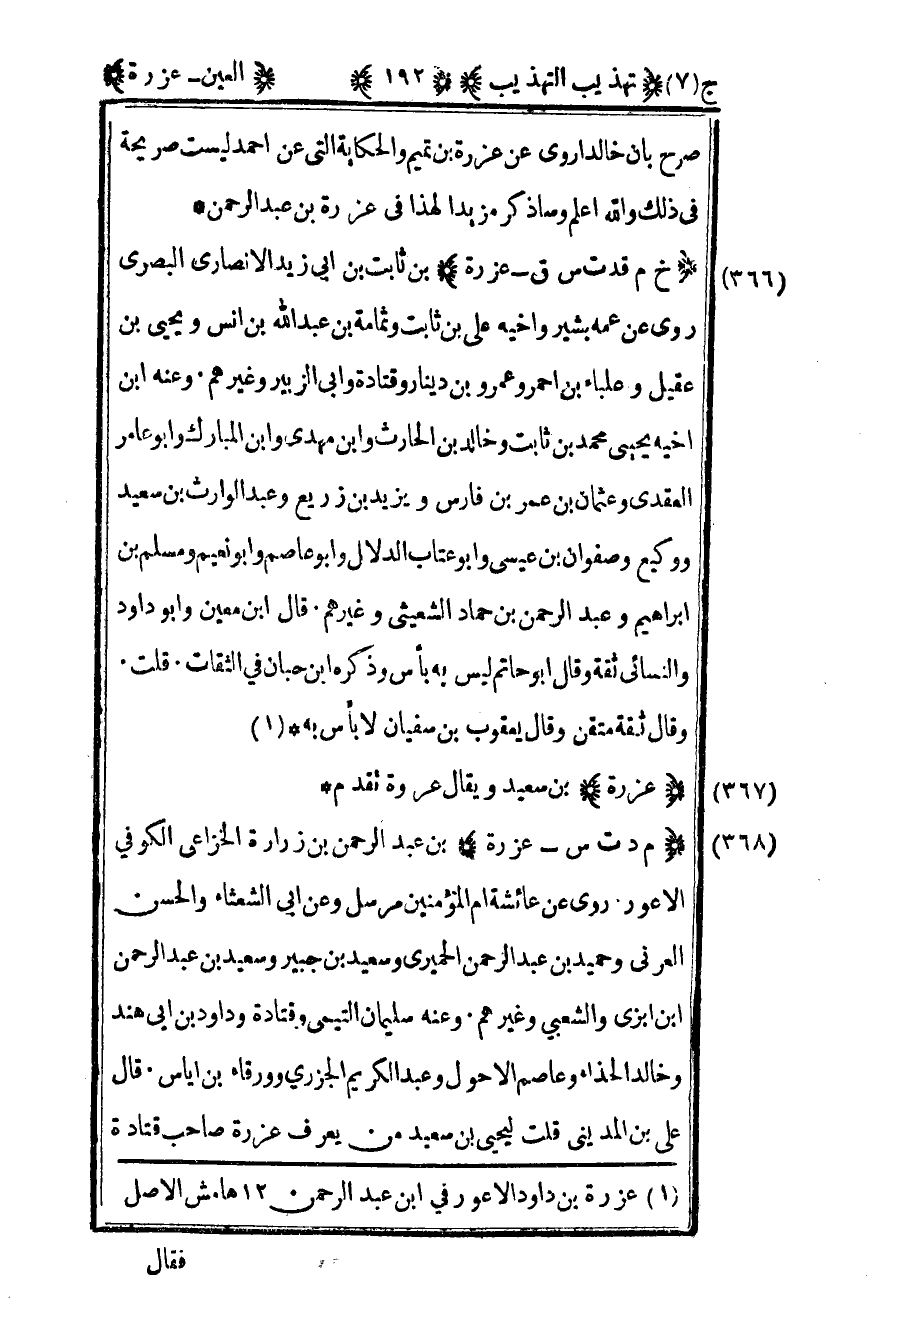 ج(٧) ﴿ تهذيب التهذيب ﴾ ﴿ ١٩٢ ﴾ ﴿ العين ـ عزرة ﴾
صرح بان خالدا روى عن عزرة بن تميم والحكاية التى عن احمد ليست صريحة
فى ذلك والله اعلم وساذكر مزيدا لهذا فى عزرة بن عبد الرحمن*
(٣٦٦) ﴿ خ م قد ت س ق ـ عزرة ﴾ بن ثابت بن ابى زيد الانصارى البصرى
روى عن عمه بشير واخيه على بن ثابت وثمامة بن عبد الله بن انس و يحيى بن
عقيل و علباء بن احمر وعمرو بن دينار وقتادة وابى الزبير وغيرهم · وعنه ابن
اخيه يحيى محمد بن ثابت وخالد بن الحارث وابن مهدى وابن المبارك وابو عامر
العقدى وعثمان بن عمر بن فارس و يزيد بن زريع وعبد الوارث بن سعيد
ووكيع وصفوان بن عيسى وابو عتاب الدلال وابو عاصم وابو نعيم ومسلم بن
ابراهيم و عبد الرحمن بن حماد الشعيثى و غيرهم · قال ابن معين وابو داود
والنسائى ثقة وقال ابو حاتم ليس به بأس وذكره ابن حبان في الثقات · قلت ·
وقال ثقة متقن وقال يعقوب بن سفيان لا بأس به* (١)
(٣٦٧) ﴿ عزرة ﴾ بن سعيد و يقال عروة تقدم*
(٣٦٨) ﴿ م د ت س ـ عزرة ﴾ بن عبد الرحمن بن زرارة الخزاعى الكوفي
الاعور · روى عن عائشة ام المؤمنين مرسل وعن ابي الشعثاء والحسن
العرنى وحميد بن عبد الرحمن الحميرى وسعيد بن جبير وسعيد بن عبد الرحمن
ابن ابزى والشعبي وغيرهم · وعنه سليمان التيمى وقتادة وداود بن ابى هند
وخالد الحذاء وعاصم الاحول وعبد الكريم الجزري وورقاء بن اياس · قال
على بن المدينى قلت ليحيى بن سعيد من يعرف عزرة صاحب قتادة
(١) عزرة بن داود الاعور في ابن عبد الرحمن ١٢ هامش الاصل
فقال